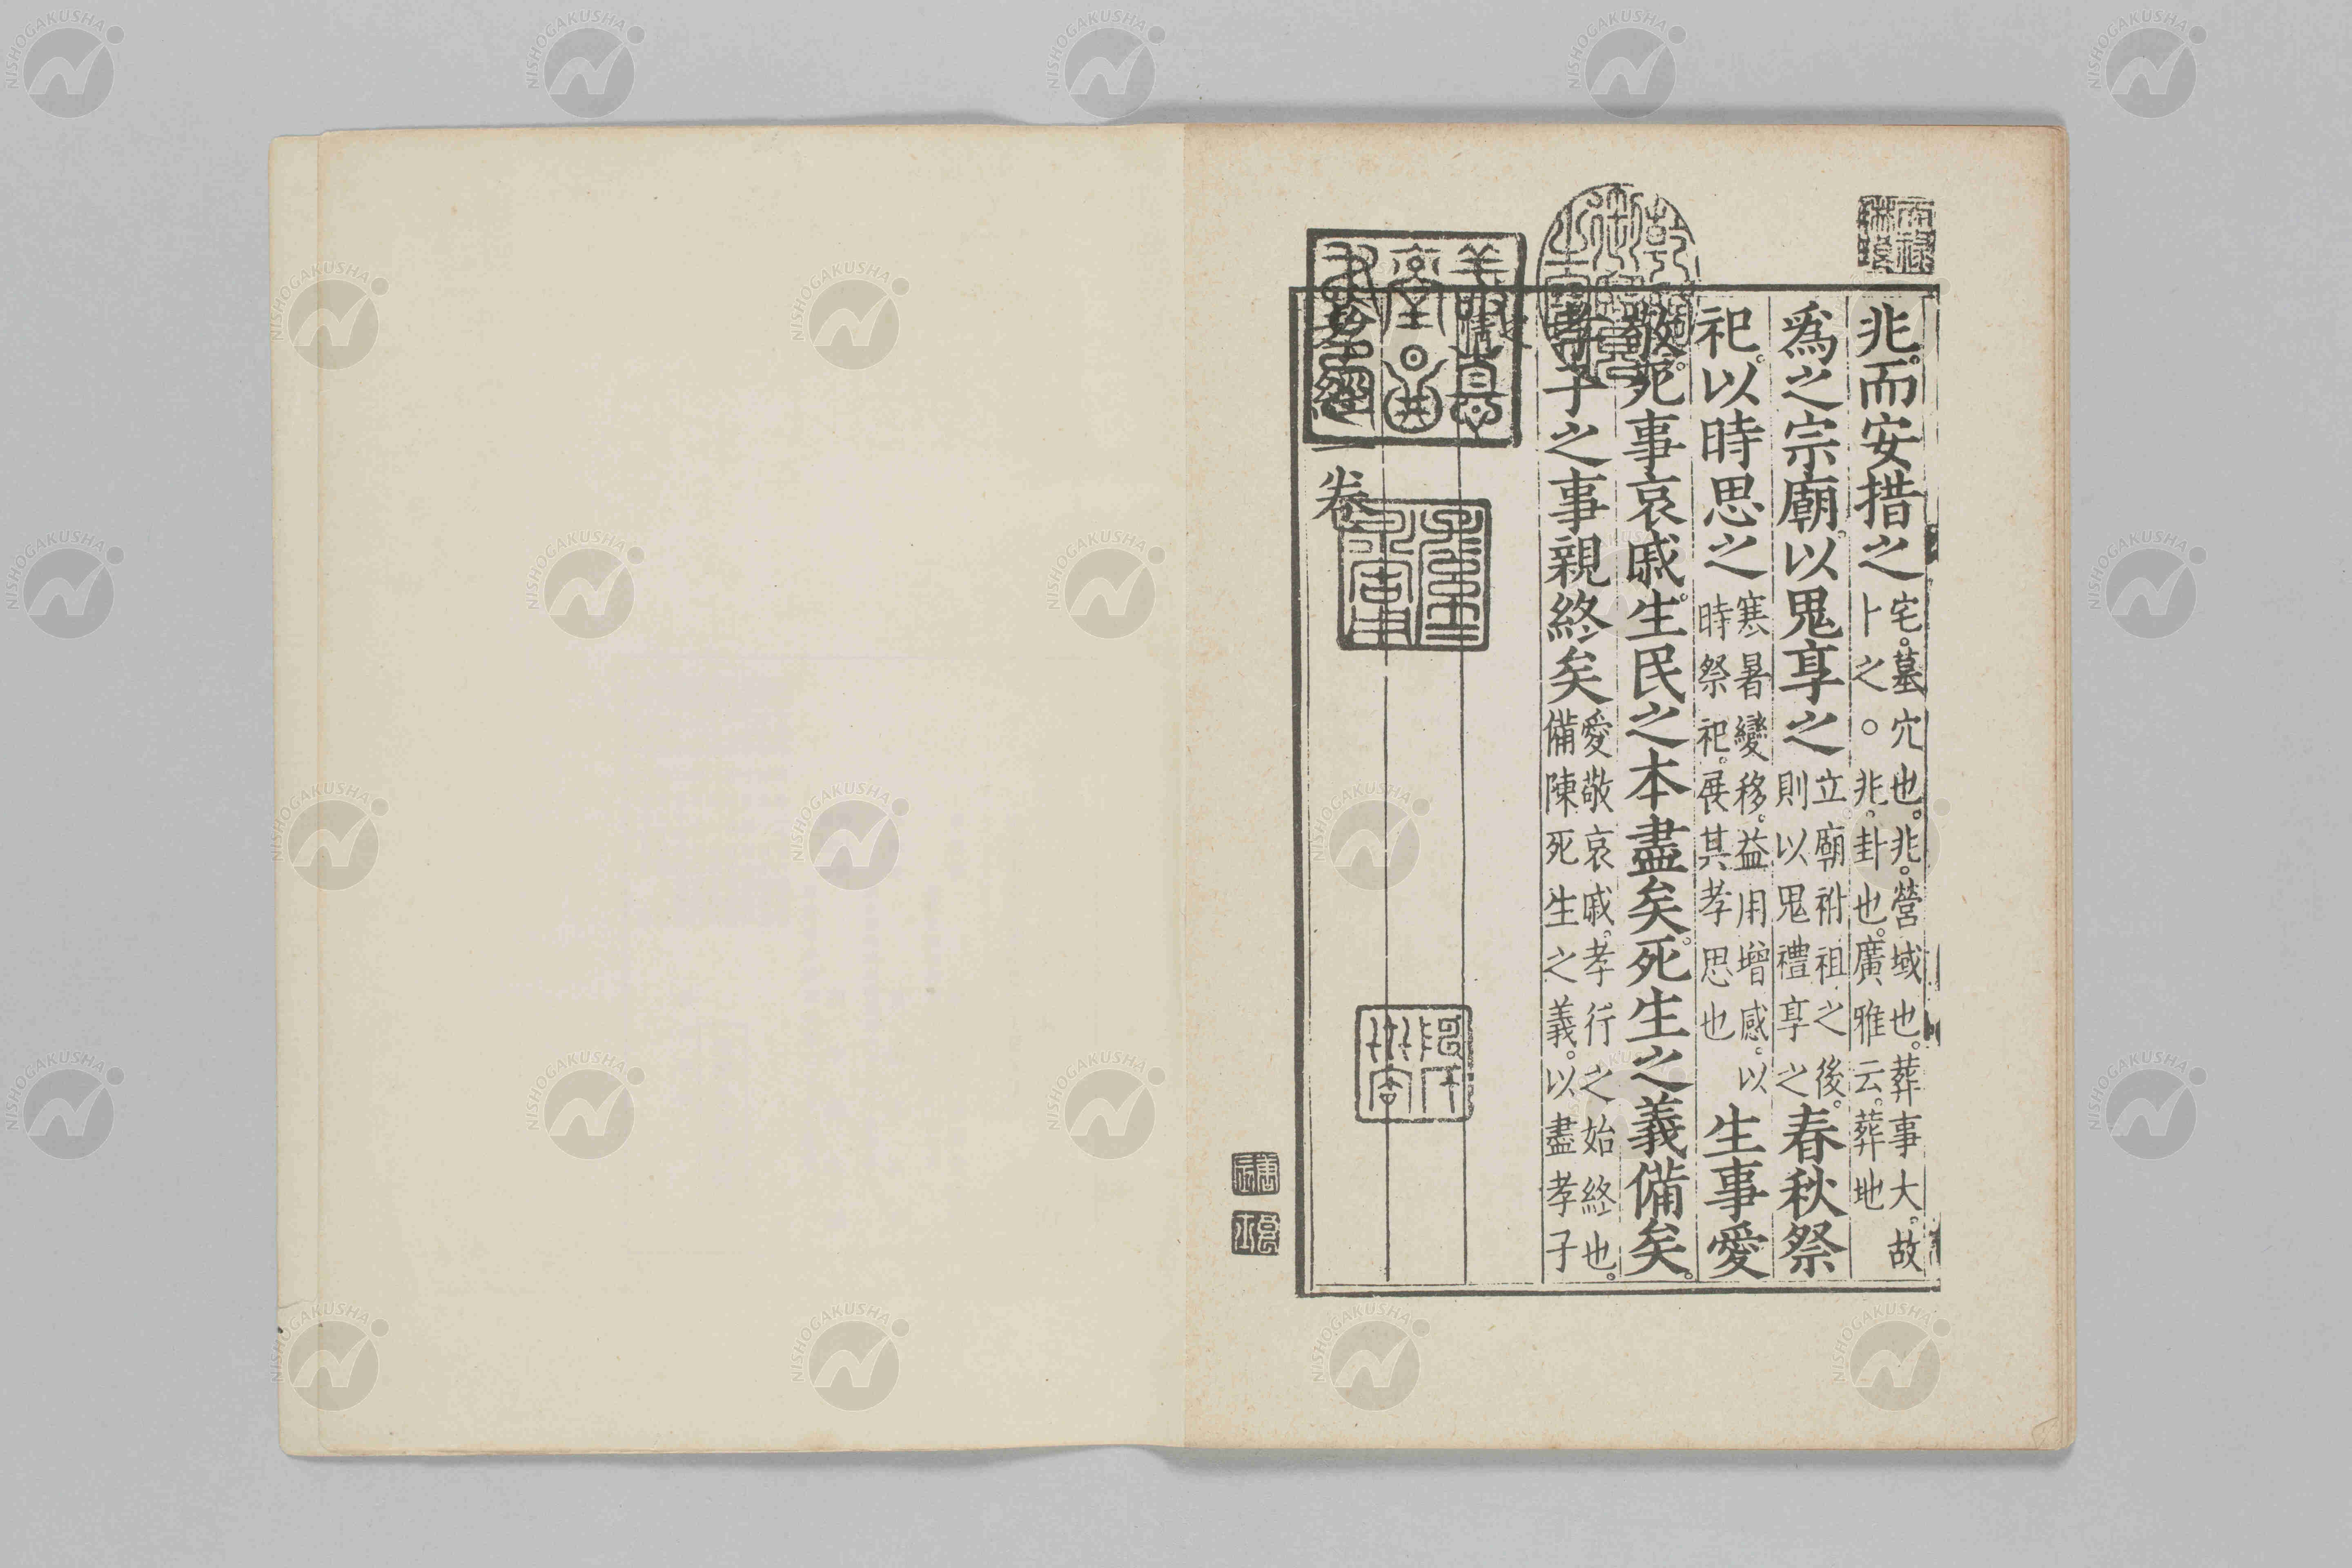 兆。而安措之宅。墓穴也。兆。營域也。葬事大。故卜之。○兆。卦也。廣雅云。葬地
爲之宗廟。以鬼享之立廟祔祖之後。則以鬼禮享之春秋祭
祀。以時思之寒暑變移。益用增感。以時祭祀。展其孝思也生事愛
敬。死事哀戚。生民之本盡矣。死生之義備矣。
孝子之事親終矣愛敬哀戚。孝行之始終也。備陳死生之義。以盡孝子
孝經一卷
NISHOGAKUSHA